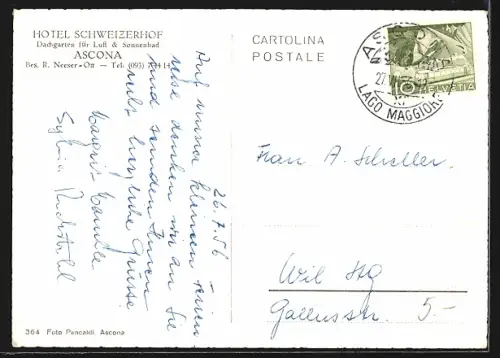 HOTEL SCHWEIZERHOF
Dachgarten für Luft & Sonnenbad
ASCONA
Bes. R. Neeser-Ott — Tel. (093)
CARTOLINA
POSTALE
ASCONA
LAGO MAGGIORE
10 HELVETIA
26.7.56
Auf unsrer kleinen Ferien-
reise denken wir an Sie
und senden Ihnen
recht herzliche Grüsse
Sylvia
Frau A. Scheller
Wil StG
Gallusstr.
5.-
364 Foto Pancaldi, Ascona